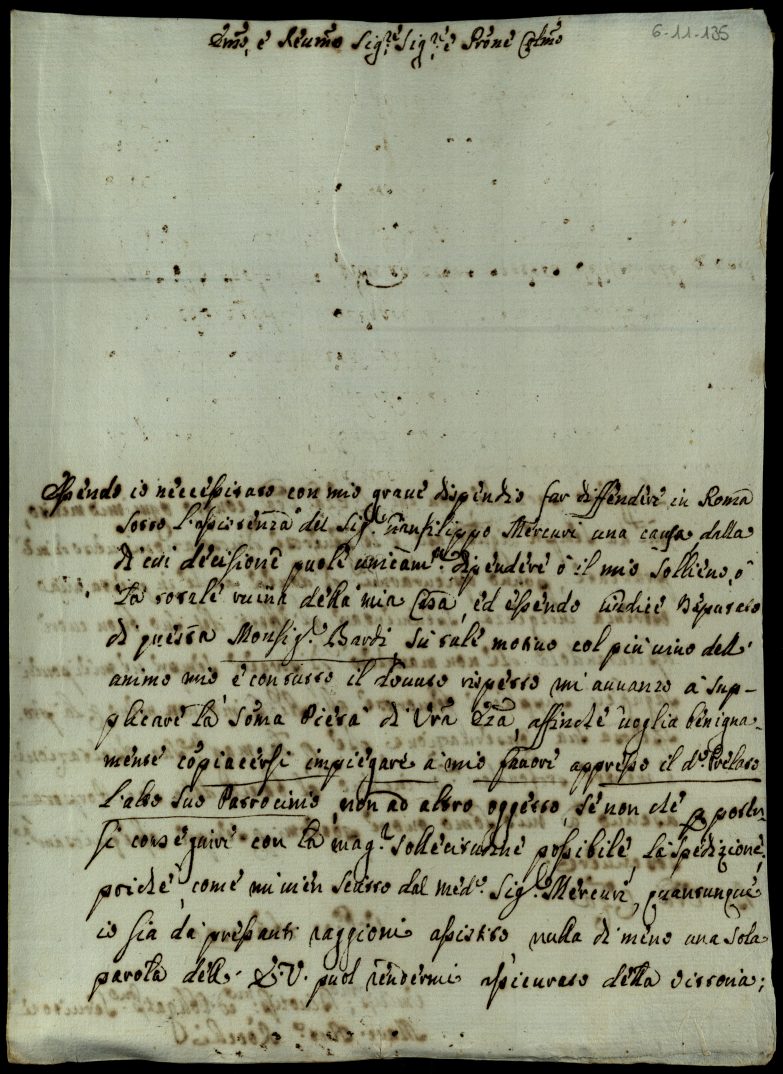 Illmo, e Reumo Sig.re Sig.re e Prone Colmo
6-11-135
Essendo io neccessitato con mio graue dispendio far diffendere in Roma
sotto l'assistenza del Sig.r Gianfilippo Mercuri una causa, dalla
di cui decisione puole unicam.te dipendere ò il mio sollieuo, ò
la totale ruina della mia Casa, ed essendo Giudice Deputato
di questa Monsig.r Bardi, sù tale motiuo col più uiuo dell'
animo mio e con tutto il douuto rispetto mi auuanzo à sup-
plicare la soma Pietà di Vra Illma, affinche uoglia benigna-
mente copiacersi impiegare à mio fauore appresso il d.o Prelato
l'alto suo Patrocinio, non ad altro oggetto, se non che p poter-
si conseguire con la mag.r sollecitudine possibile la spedizione,
poiche, come mi uien scritto dal med.o Sig.r Mercuri, quantunque
io sia da pressanti raggioni assistito nulla di meno una sola
parola dell' V.S. puol rendermi assicurato della vittoria;